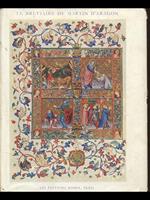 LE BREVIAIRE DE MARTIN D'ARAGON
LES EDITIONS NOMIS, PARIS